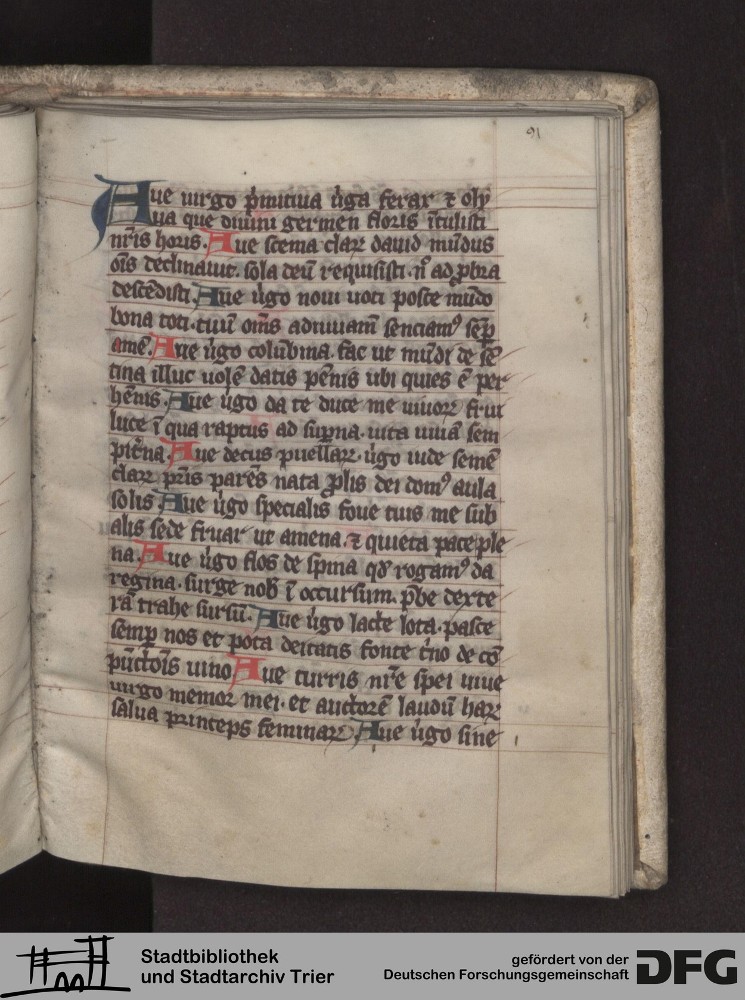 91
Aue uirgo p̄mitiua ůga feraꝝ ⁊ oly
ua que diuini germen floris ītulisti
nr̄is horis. Aue stema claꝝ dauid mūdus
oīs declinauit. sola deū requisisti. n̄ ad ꝓbra
descēdisti. Aue ůgo noui uoti poste mūdo
bona toti. tuū om̄s adiuuam̄ senciamꝰ sēp
amē. Aue ůgo colūbina. fac ut mūdi de sē
tina illuc uolē datis pēnis ubi quies ē per
hēnis. Aue ůgo da te duce me uiuoꝝ frui
luce ī qua raptus ad sup̄na. uita uiuā sem
pit̄na. Aue decus puellaꝝ. ůgo iude semē
claꝝ pr̄is parēs nata ꝓlis dei domꝰ aula
solis. Aue ůgo specialis foue tuis me sub
alis sede fruar ut amena. ⁊ quieta pace ple
na. Aue ůgo flos de spina qď rogamꝰ da
regina. surge nob̄ ī occursum. p̄be dexte
rā trahe sursū. Aue ůgo lacte lota. pasce
semꝑ nos et pota deitatis fonte t̓no de cō
pūct̄ōīs uino Aue turris nr̄e spei uiue
uirgo memor mei. et auctorē laudū haꝝ
salua princeps feminaꝝ. Aue ůgo sine
Stadtbibliothek
und Stadtarchiv Trier
gefördert von der
Deutschen Forschungsgemeinschaft
DFG